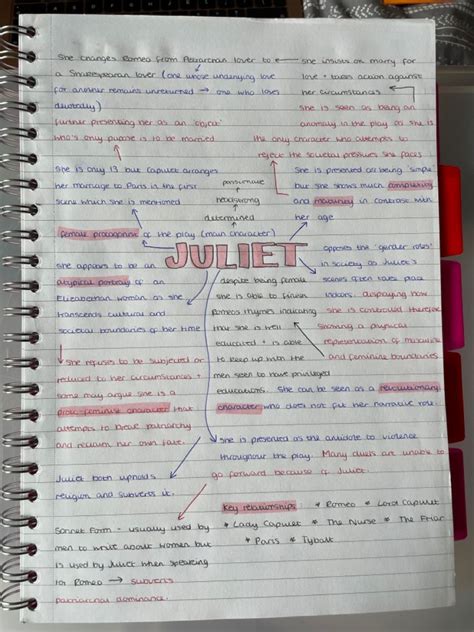 She changes Romeo from Petrarchan lover to
a Shakespearan lover (one whose underlying love
for another remains unreturned → one who loves
devotedly)
further presenting her as an 'object'
who's only purpose is to be married
she insists on marry for
love + takes action against
her circumstances
she is seen as being an
anomaly in the play as she is
the only character who attempts to
reject the societal pressures she faces
She is only 13 but Capulet arranges
her marriage to Paris in the first
scene which she is mentioned
passionate
headstrong
determined
She is presented as being 'simple'
but she shows much
and maturity in contrast with
her age
female protagonist of the play (main character)
JULIET
she appears to be an
atypical portrayl of an
Elizabethan woman as she
transcends cultural and
societal boundaries of her time
despite being female
she is able to finish
Romeo's rhymes indicating
that she is well
educated + is able
to keep up with the
men seen to have privileged
educations. She can be seen as a revolutionary
character who does not fit her narrative role.
opposes the 'gender roles'
in society as Juliet's
scenes often takes place
indoors, displaying how
she is controlled therefore
showing a physical
representation of masculine
and feminine boundaries
She refuses to be subjected or
reduced to her circumstances +
some may argue she is a
proto-feminist character that
attempts to break patriarchy
and reclaim her own fate.
She is presented as the antidote to violence
throughout the play. Many duels are unable to
go forward because of Juliet.
Juliet both upholds
religion and subverts it.
Key relationships
* Romeo * Lord Capulet
* Lady Capulet * The Nurse * The Friar
* Paris * Tybalt
Sonnet form - usually used by
men to write about women but
is used by Juliet when speaking
for Romeo → subverts
patriarchal dominance.